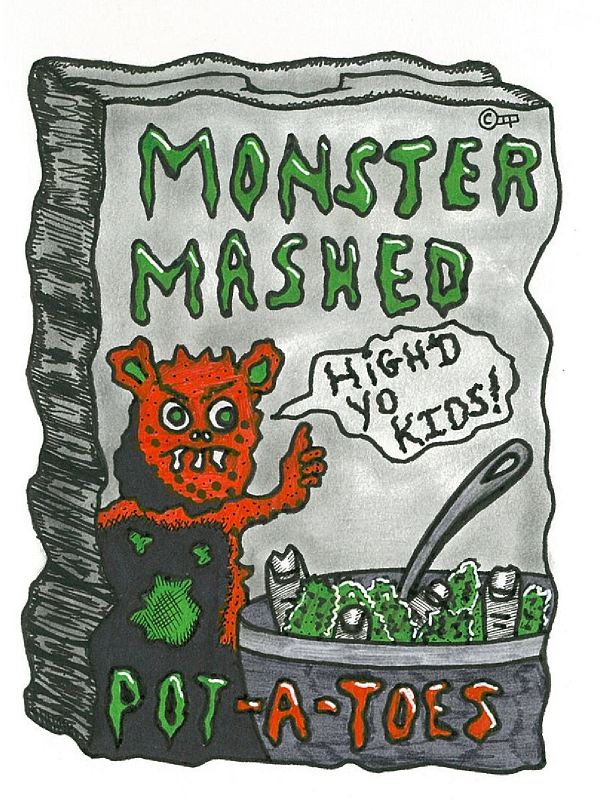 ©
MONSTER
MASHED
HiGH'D
YO
KIDS!
POT-A-TOES